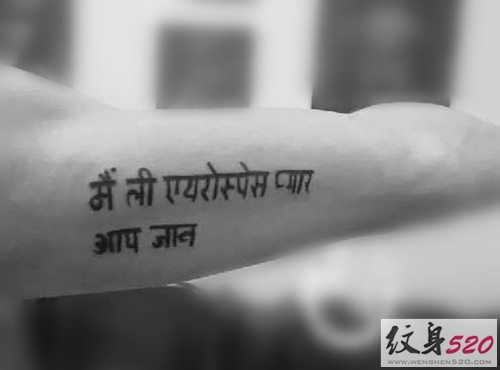 मैं ली एयरोस्पेस प्यार
आप जान
纹身520
WWW.WENSHEN520.COM